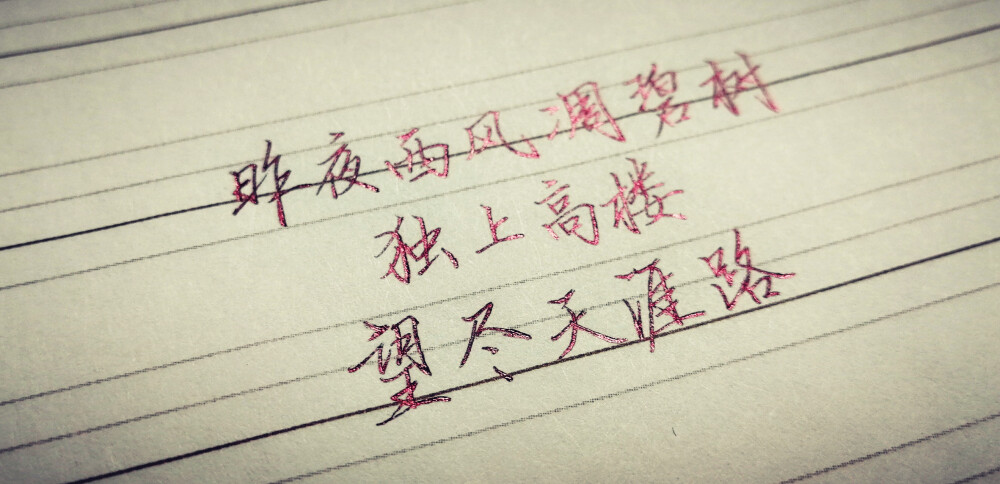 昨夜西风凋碧树
独上高楼
望尽天涯路